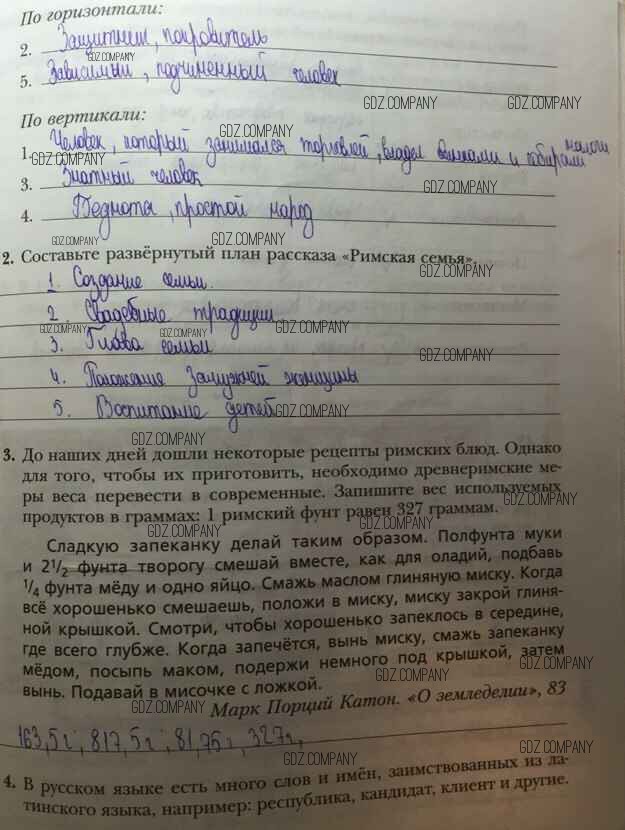 По горизонтали:
2. Защитник, покровитель
GDZ.COMPANY
5. Зависимый, подчиненный человек
GDZ.COMPANY GDZ.COMPANY
По вертикали:
GDZ.COMPANY
1. Человек, который занимался торговлей, владел землями и собирали налоги
GDZ.COMPANY
3. Знатный человек
GDZ.COMPANY
4. Беднота, простой народ
GDZ.COMPANY GDZ.COMPANY
2. Составьте развёрнутый план рассказа «Римская семья».
GDZ.COMPANY
1. Создание семьи.
2. Свадебные традиции
GDZ.COMPANY GDZ.COMPANY GDZ.COMPANY
3. Глава семьи
GDZ.COMPANY
4. Положение замужней женщины
5. Воспитание детей
GDZ.COMPANY
GDZ.COMPANY
3. До наших дней дошли некоторые рецепты римских блюд. Однако
для того, чтобы их приготовить, необходимо древнеримские ме-
ры веса перевести в современные. Запишите вес используемых
продуктов в граммах: 1 римский фунт равен 327 граммам.
GDZ.COMPANY
GDZ.COMPANY
Сладкую запеканку делай таким образом. Полфунта муки
и 2 1/2 фунта творогу смешай вместе, как для оладий, подбавь
1/4 фунта мёду и одно яйцо. Смажь маслом глиняную миску. Когда
всё хорошенько смешаешь, положи в миску, миску закрой глиня-
ной крышкой. Смотри, чтобы хорошенько запеклось в середине,
где всего глубже. Когда запечётся, вынь миску, смажь запеканку
мёдом, посыпь маком, подержи немного под крышкой, затем
вынь. Подавай в мисочке с ложкой.
GDZ.COMPANY
GDZ.COMPANY
GDZ.COMPANY
GDZ.COMPANY
Марк Порций Катон. «О земледелии», 83
GDZ.COMPANY
163,5г, 817,5г, 81,75г, 327г,
GDZ.COMPANY GDZ.COMPANY
4. В русском языке есть много слов и имён, заимствованных из ла-
тинского языка, например: республика, кандидат, клиент и другие.
GDZ.COMPANY